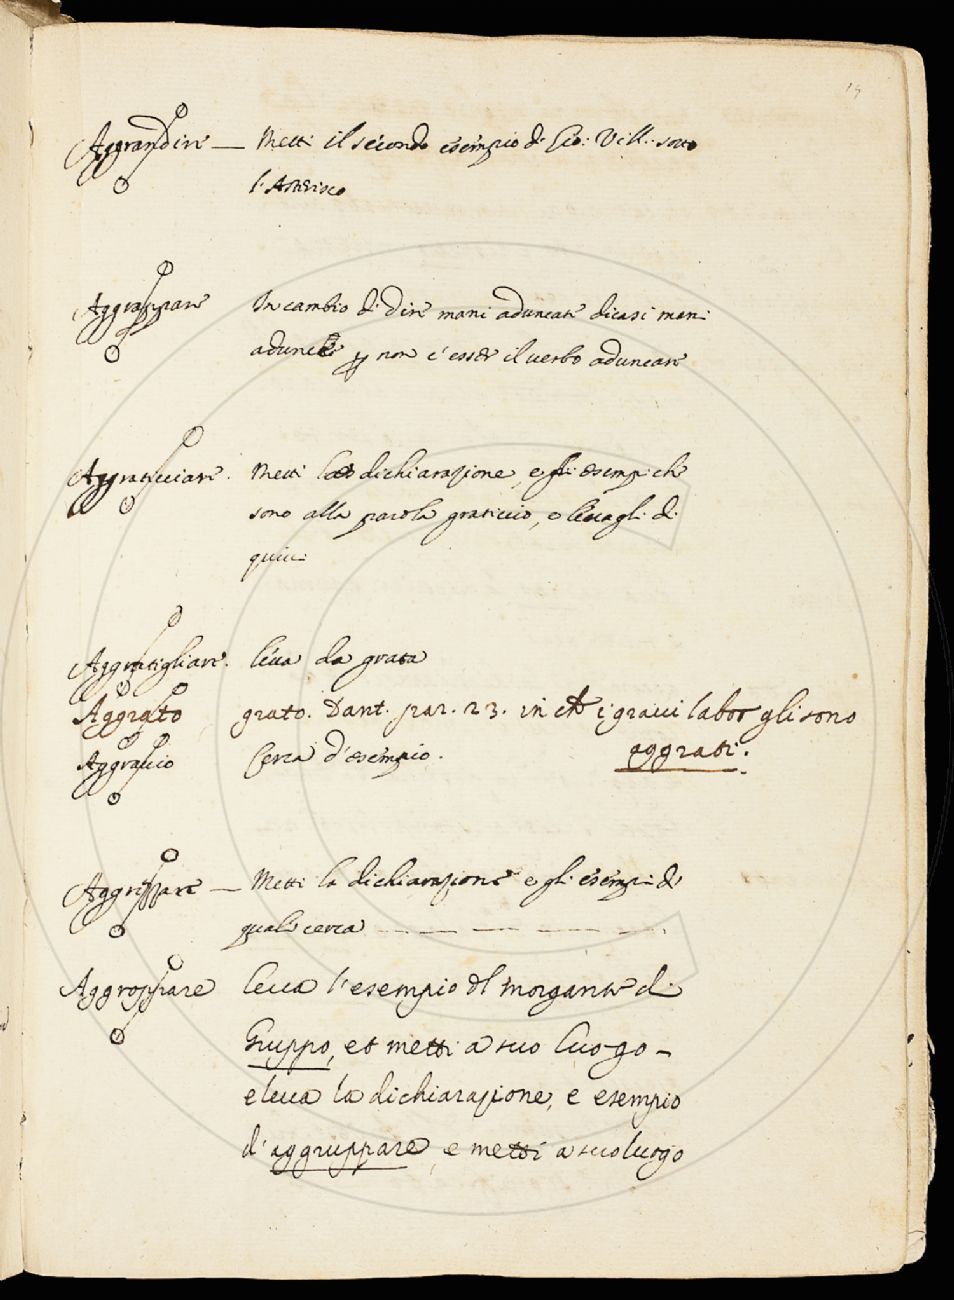 19
Aggrandire — Metti il secondo esempio di Gio: Vill: sotto
l'Asterisco
Aggrappare In cambio di dire mani aduncate dicasi mani
adunche non c'esser il verbo aduncare
Aggraticciare. Metti la dichiarazione, e gli esempi che
sono alla parola graticcio, o levagli di
quivi
Aggratigliare. leva da grata
Aggrato grato. Dant. par. 23. in che i gravi labor gli sono
aggrati.
Aggravio Cerca d'esempio.
Aggrappare — Metti la dichiarazione e gli esempi di
quali cerca — — — — — —.
Aggroppare Leva l'esempio del morgante di
Gruppo, et metti a suo luogo —
e leva la dichiarazione, e esempio
d'aggruppare, e metti a suo luogo